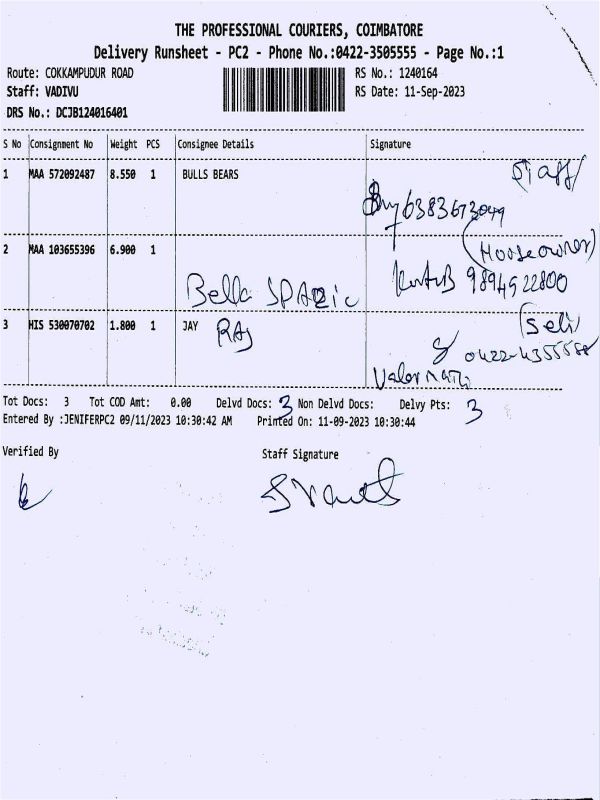 THE PROFESSIONAL COURIERS, COIMBATORE
Delivery Runsheet - PC2 - Phone No.:0422-3505555 - Page No.:1
Route: COKKAMPUDUR ROAD
Staff: VADIVU
DRS No.: DCJB124016401
RS No.: 1240164
RS Date: 11-Sep-2023
S No Consignment No Weight PCS Consignee Details Signature
1 MAA 572092487 8.550 1 BULLS BEARS Staff
6383673044
2 MAA 103655396 6.900 1 (Houseowner)
Bella 9894522800
3 HIS 530070702 1.800 1 JAY RAJ (Seli)
0422-4355558
Tot Docs: 3 Tot COD Amt: 0.00 Delvd Docs: 3 Non Delvd Docs: Delvy Pts: 3
Entered By :JENIFERPC2 09/11/2023 10:30:42 AM Printed On: 11-09-2023 10:30:44
Verified By Staff Signature